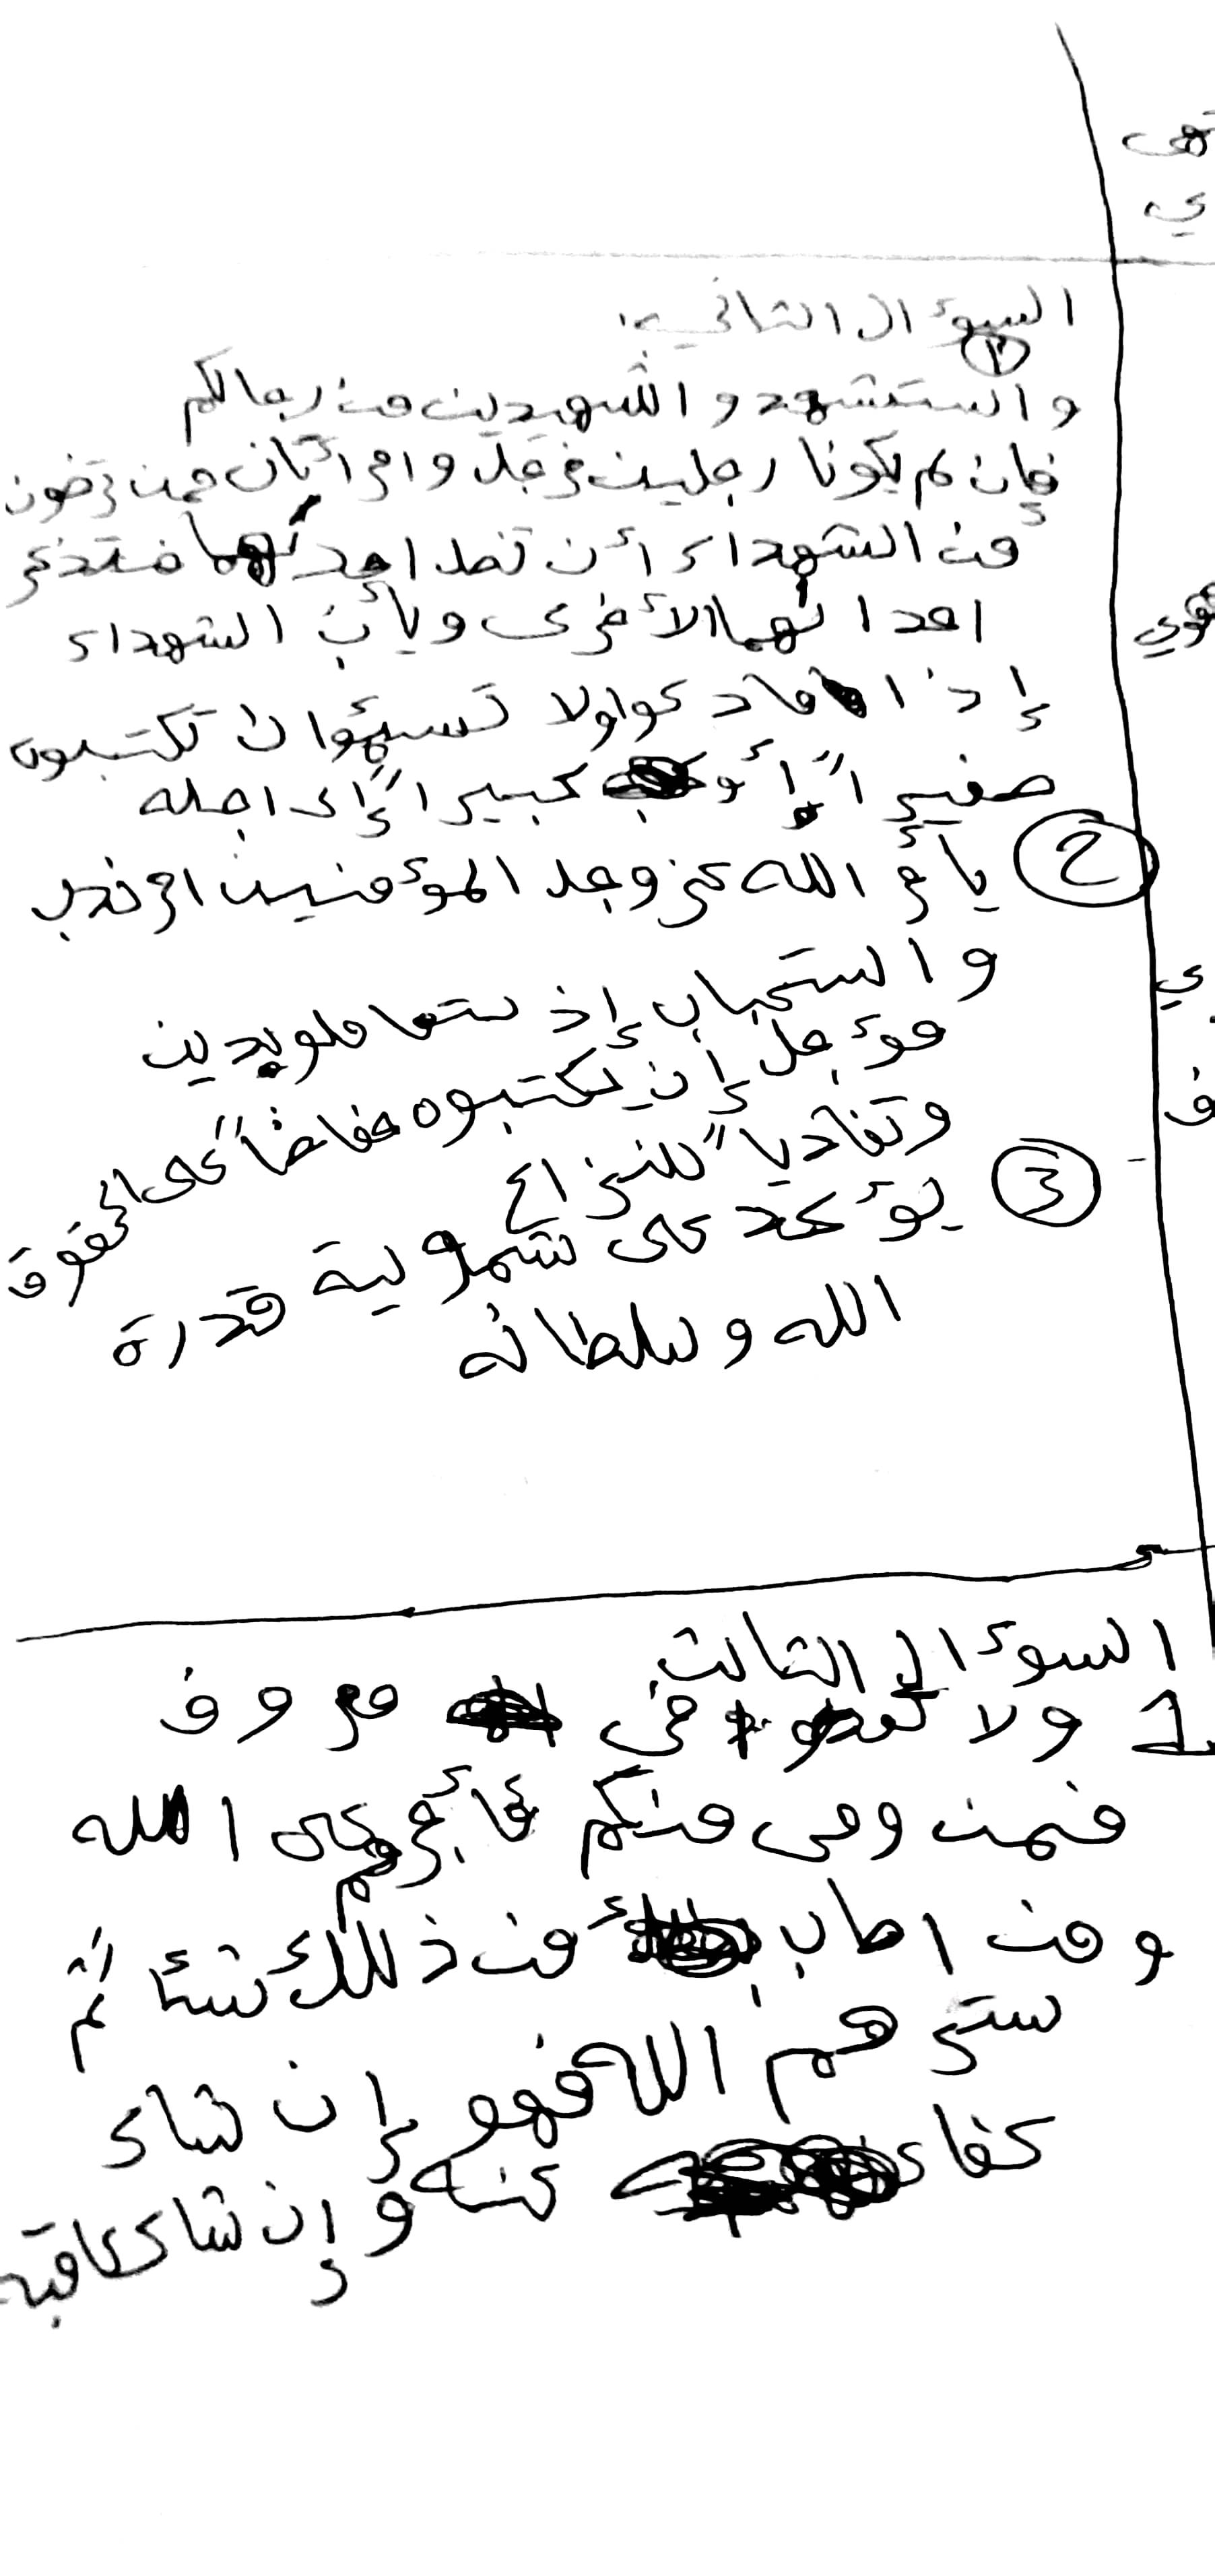 تهى
ي
السؤال الثاني:
١
والستشهدو الشهيدين من رجالكم
فإن لم يكونا رجلين فرجل وامرأتان ممن ترضون
من الشهداء أن تضل احدئهما فتذكر
احدا ئهما الأخرى ويأب الشهداء
إذا مادعواولا تسئموا ان تكتبوه
صغيراً أو كبيراً إلى اجله
2 يأمر الله عزوجل المؤمنين امر ندب
والستحباب إذ تعاملو بدين
مؤجل إن يكتبوه حفاظاً على الحقوق
وتفادياً للنزاع
3 يؤكد على شمولية قدرة
الله وسلطانه
ي
ف
السؤال الثالث
1 ولا تعصو في معروف
فمن وفى منكم فأجره على الله
ومن اصاب من ذلك شئاً ثم
ستره الله فهو إن شاء
عفاء عنه وإن شاء عاقبه